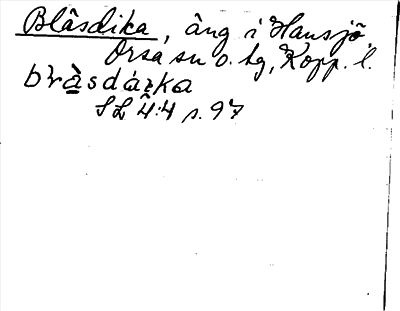 Blåsdika, äng i Hansjö,
Orsa sn o. tg, Kopp. l.
brà̱sdáɩ̨ka
SL 4:4 s. 97